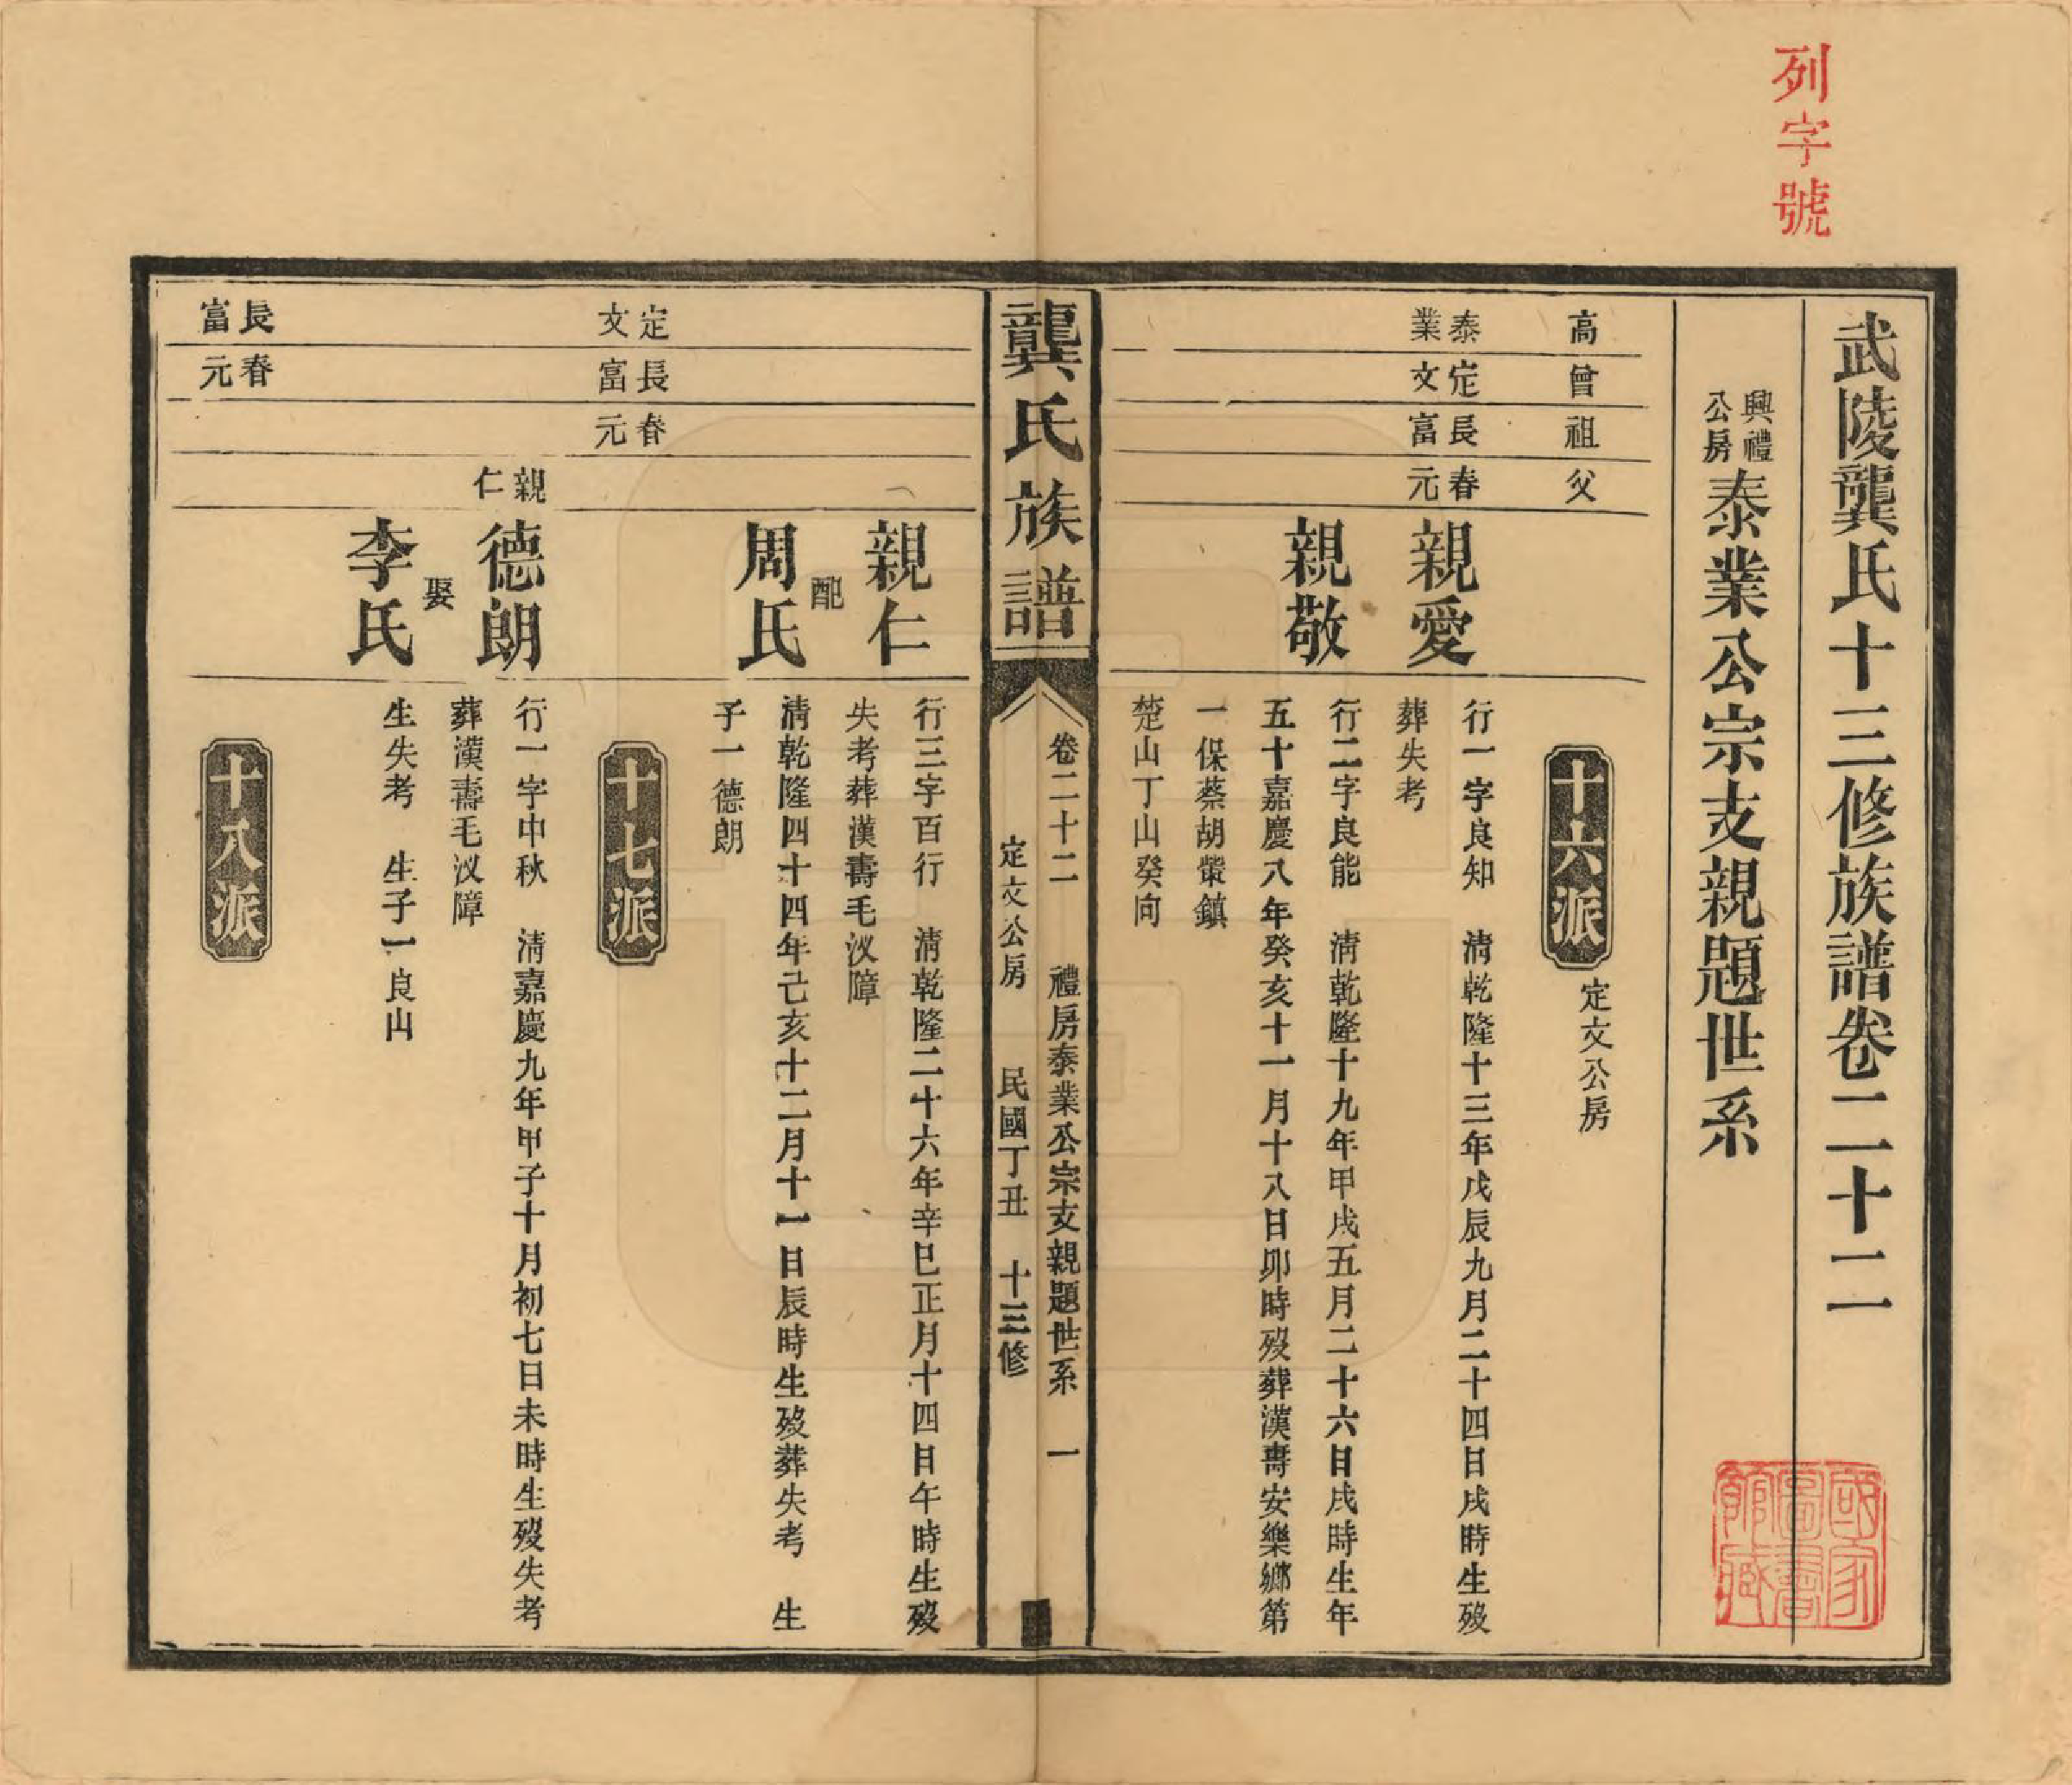 列字號
武陵龔氏十三修族譜卷二十二
興禮公房泰業公宗支親題世系
高 曾 祖 父
十六派 定文公房
泰業 定文 長富 春元
親愛
行一字良知 清乾隆十三年戊辰九月二十四日戌時生歿
葬失考
親敬
行二字良能 清乾隆十九年甲戌五月二十六日戌時生年
五十嘉慶八年癸亥十一月十八日卯時歿葬漢壽安樂鄉第
一保蔡胡螢鎮
楚山丁山癸向
龔氏族譜
卷二十二 禮房泰業公宗支親題世系 一
定文公房 民國丁丑 十三修
親仁
行三字百行 清乾隆二十六年辛巳正月十四日午時生歿
失考葬漢壽毛汊障
配
周氏
清乾隆四十四年己亥十二月十一日辰時生歿葬失考 生
子一德朗
定文 長富 春元
十七派
親仁
德朗
行一字中秋 清嘉慶九年甲子十月初七日未時生歿失考
葬漢壽毛汊障
娶
李氏
生失考 生子一良山
長富 春元
十八派
國家圖書館藏